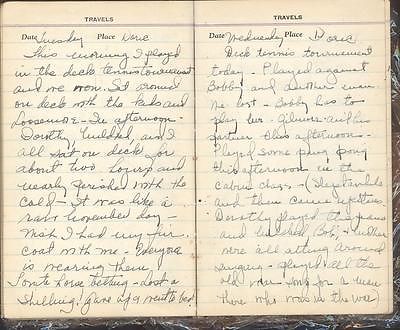 TRAVELS
Date Tuesday Place Doric
This morning I played
in the deck tennis tournament
and we won. Sat around
on deck with the kids and
Loosemore - In afternoon -
Dorothy, Mildred, and I
all sat on deck for
about two hours and
nearly perished with the
cold - It was like a
raw November day -
Wish I had my fur
coat with me. Everyone
is wearing them,
Tonite horse betting - Lost a
Shilling. Gave up & went to bed.
TRAVELS
Date Wednesday Place Doric
Deck tennis tournament
today - Played against
Bobby and another man
We lost - Bobby has to
play Mr. Gilmore and his
partner this afternoon -
Played some ping pong
this afternoon in the
cabin class -
and then came upstairs
Dorothy played the piano
and Mildred, Bob, & I
were all sitting around
singing - played all the
old war songs for a man
there who was in the war)